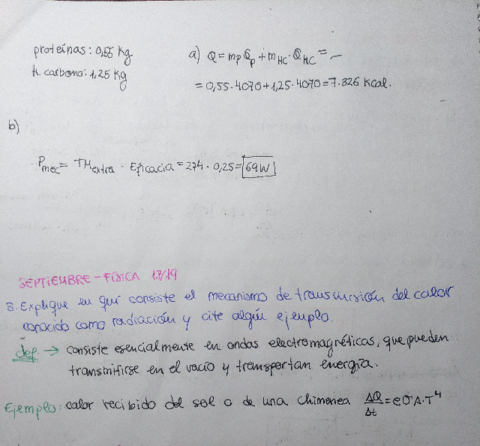 proteínas: 0,55 Kg
h. carbono: 1,25 Kg
a) Q = mp Qp + mHC · QHC =
= 0,55 · 4070 + 1,25 · 4070 = 7.326 Kcal.
b)
Pmec = TMextra · Eficacia = 274 · 0,25 = 69 W
SEPTIEMBRE - FÍSICA 18/19
3. Explique en qué consiste el mecanismo de transmisión del calor
conocido como radiación y cite algún ejemplo.
def → consiste esencialmente en ondas electromagnéticas, que pueden
transmitirse en el vacío y transportan energía.
Ejemplo: calor recibido del sol o de una chimenea ΔQ/Δt = eσA·T⁴